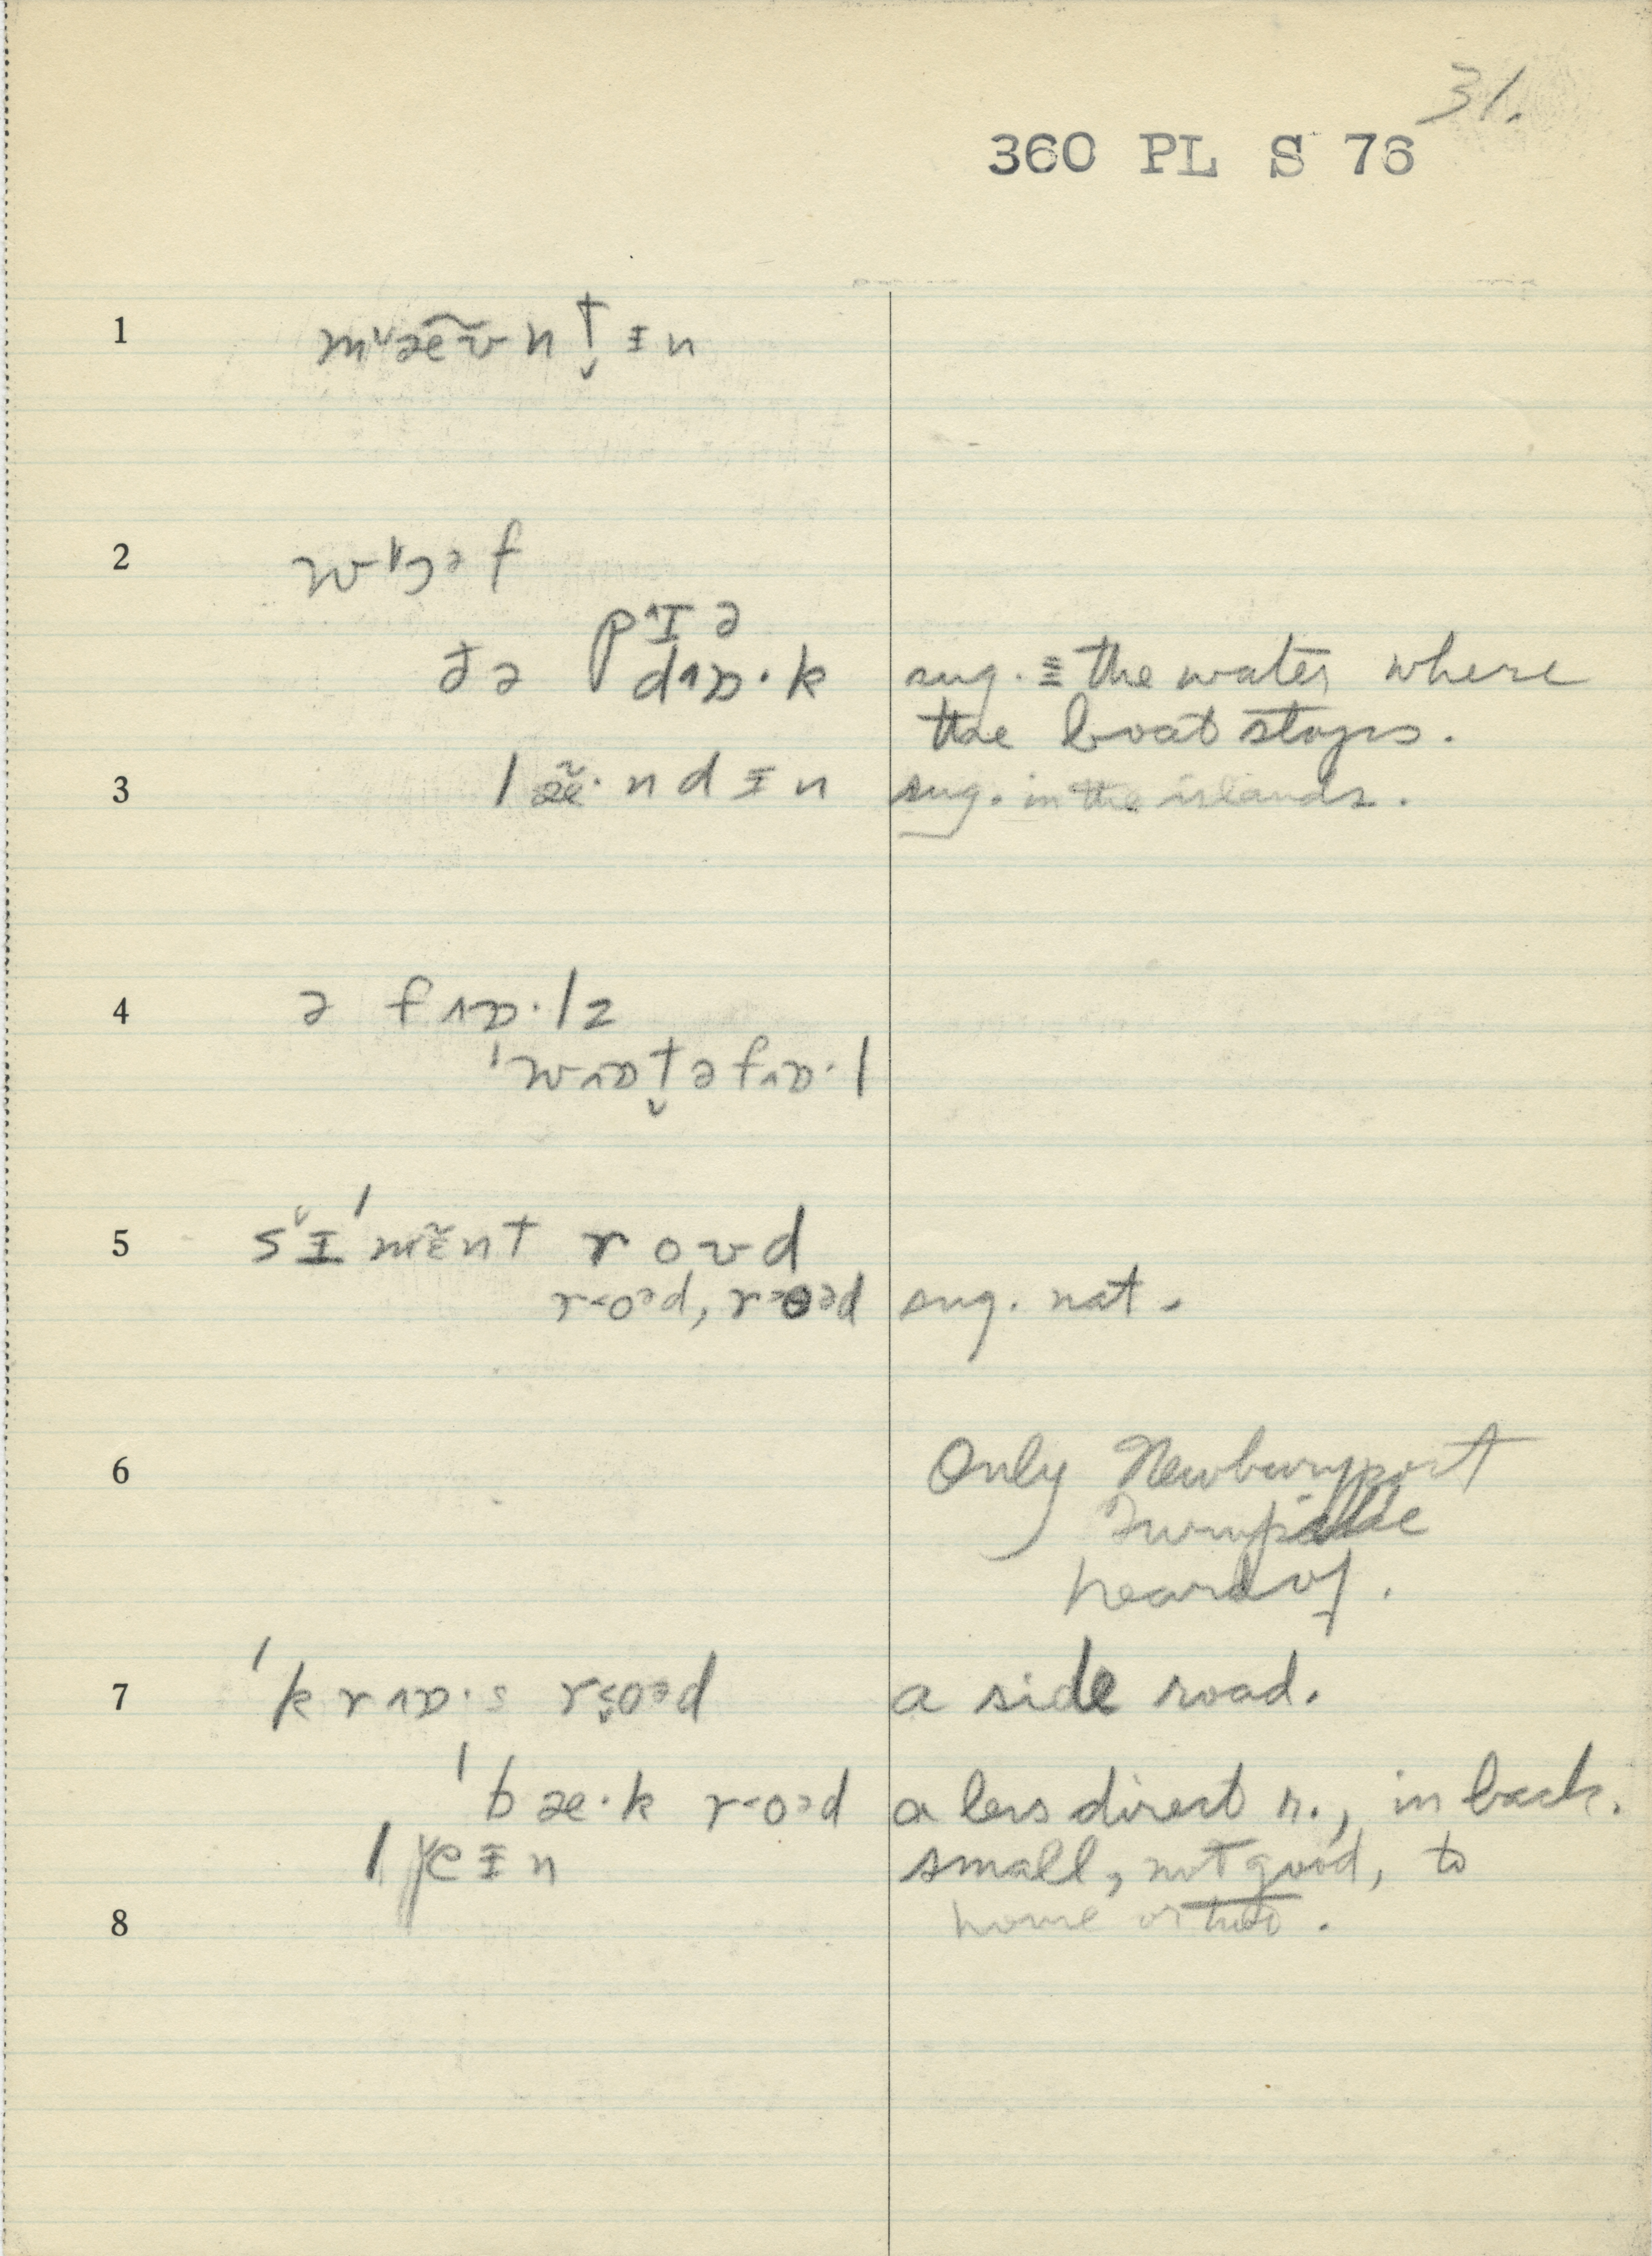 31.
360 PL S 76
1 mᵛæ̃ʊ̃nt̬ɨn
2 wɔəf
pˆɪə
ðə dˆɒ·k sug. ≡ the water where
the boat stops.
3 læ̃·ndɨn sug. in the islands.
4 ə fˆɒ·lz
ˈwˆɒt̬əfˆɒ·l
5 sᵛɨˈmɛ̃nt roʊd
r˂oᵊd, r˃ɵəd sug. nat.
6 Only Newburyport
Turnpike
heard of.
7 ˈkrˆɒ·s r˂oᵊd a side road.
ˈbæ·k r˂oᵊd a less direct r., in back.
leɨn small, not good, to
8 home or two.